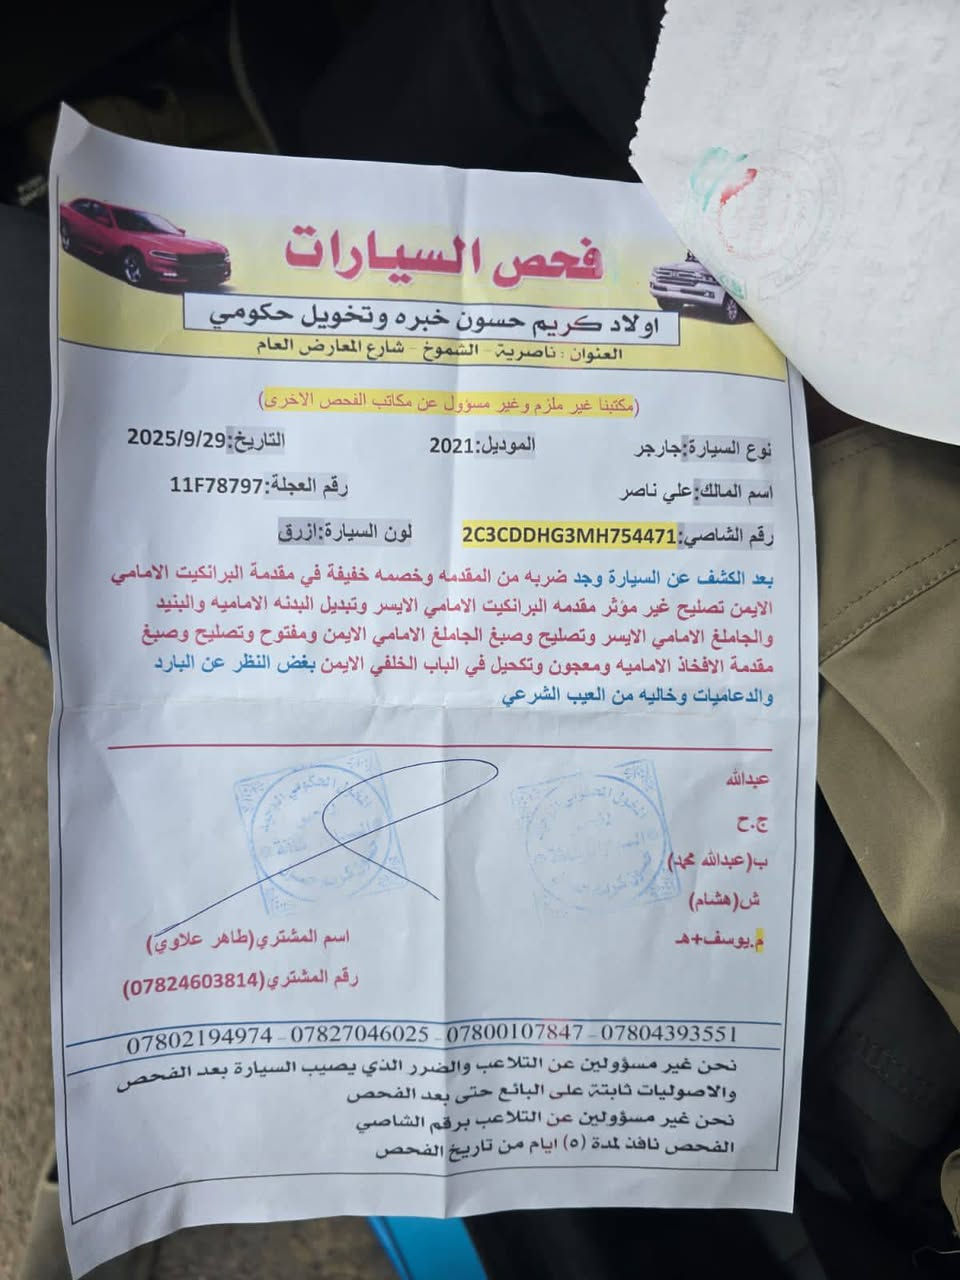 فحص السيارات
اولاد كريم حسون خبره وتخويل حكومي
العنوان : ناصرية - الشموخ - شارع المعارض العام
(مكتبنا غير ملزم وغير مسؤول عن مكاتب الفحص الاخرى)
نوع السيارة:جارجر الموديل:2021 التاريخ:2025/9/29
اسم المالك:علي ناصر رقم العجلة:11F78797
رقم الشاصي:2C3CDDHG3MH754471 لون السيارة:ازرق
بعد الكشف عن السيارة وجد ضربه من المقدمه وخصمه خفيفة في مقدمة البرانكيت الامامي
الايمن تصليح غير مؤثر مقدمه البرانكيت الامامي الايسر وتبديل البدنه الاماميه والبنيد
والجاملغ الامامي الايسر وتصليح وصبغ الجاملغ الامامي الايمن ومفتوح وتصليح وصبغ
مقدمة الافخاذ الاماميه ومعجون وتكحيل في الباب الخلفي الايمن بغض النظر عن البارد
والدعاميات وخاليه من العيب الشرعي
عبدالله
ج.ح
ب(عبدالله محمد)
ش(هشام)
م.يوسف+هـ
اسم المشتري(طاهر علاوي)
رقم المشتري(07824603814)
07802194974 - 07827046025 - 07800107847 - 07804393551
نحن غير مسؤولين عن التلاعب والضرر الذي يصيب السيارة بعد الفحص
والاصوليات ثابتة على البائع حتى بعد الفحص
نحن غير مسؤولين عن التلاعب برقم الشاصي
الفحص نافذ لمدة (٥) ايام من تاريخ الفحص